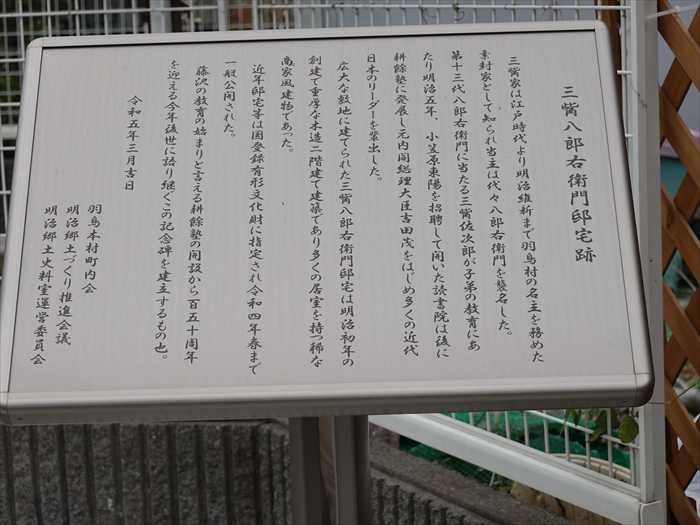 三觜八郎右衛門邸宅跡
三觜家は江戸時代より明治維新まで羽鳥村の名主を務めた
素封家として知られ当主は代々八郎右衛門を襲名した。
第十三代八郎右衛門に当たる三觜佐次郎が子弟の教育にあ
たり明治五年、小笠原東陽を招聘して開いた読書院は後に
耕餘塾に発展し元内閣総理大臣吉田茂をはじめ多くの近代
日本のリーダーを輩出した。
広大な敷地に建てられた三觜八郎右衛門邸宅は明治初年の
創建で重厚な木造二階建て建築であり多くの居室を持つ稀な
商家風建物であった。
近年邸宅等は国登録有形文化財に指定され令和四年春まで
一般公開された。
藤沢の教育の始まりと言える耕餘塾の開設から百五十周年
を迎える今年後世に語り継ぐこの記念碑を建立するもの也。
令和五年三月吉日
羽鳥本村町内会
明治郷土づくり推進会議
明治郷土史料室運営委員会